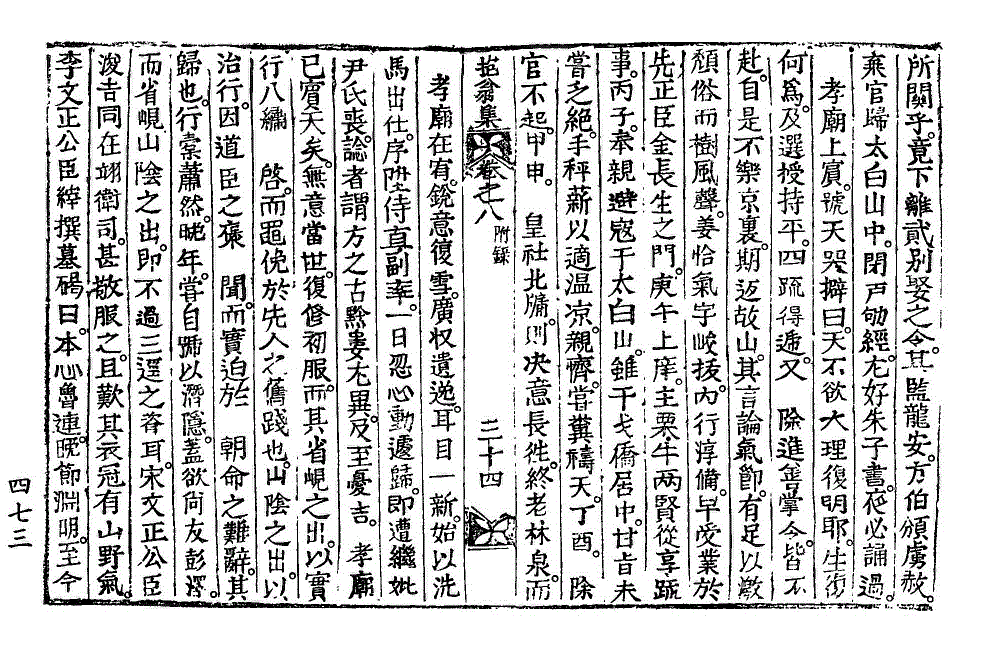 所關乎竟下離貳别娶之令其監龍安方伯頒虜赦
棄官歸太白山中閉戸劬經尤好朱子書夜必誦過
孝廟上賓號天哭擗曰天不欲大理復明耶生復
何爲及選授持平四䟽得逓又 除進善掌令皆不
赴自是不樂京裏期返故山其言論氣節有足以激
頹俗而樹風聲姜恰氣宇峻拔内行淳備早受業於
先正臣金長生之門庚午上庠主栗牛兩賢從享䟽
事丙子奉親避寇于太白山雖干戈僑居中甘旨未
嘗乏絶手秤薪以適温凉親癠嘗糞禱天丁酉 除
官不起甲申 皇社北牗則决意長徃終老林泉而
苞翁集 卷之八 附録 三十四
孝廟在宥銳意復雪廣収遺逸耳目一新始以洗
馬出仕序陞侍直副率一日忽心動遽歸即遭繼妣
尹氏喪論者謂方之古黔婁尤異及至憂吉 孝廟
已賓天矣無意當世復修初服而其省峴之出以實
行八繡 啓而黽俛於先人之舊踐也山陰之出以
治行因道臣之褒 聞而實迫於 朝命之難辭其
歸也行橐蕭然晩年嘗自號以濳隱蓋欲尙友彭澤
而省峴山陰之出即不過三逕之吝耳宋文正公臣
浚吉同在翊衛司甚敬服之且歎其衣冠有山野氣
李文正公臣縡撰墓碣曰本心魯連晩節淵明至今
四七三